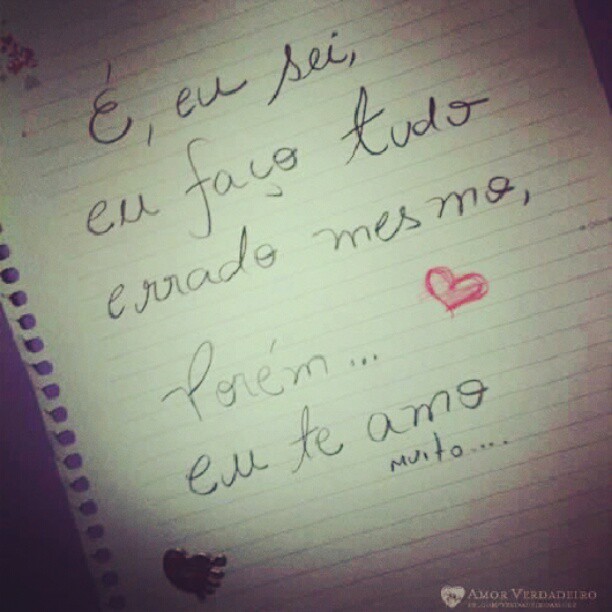 É, eu sei,
eu faço tudo
errado mesmo,
Porém...
eu te amo
muito....
AMOR VERDADEIRO